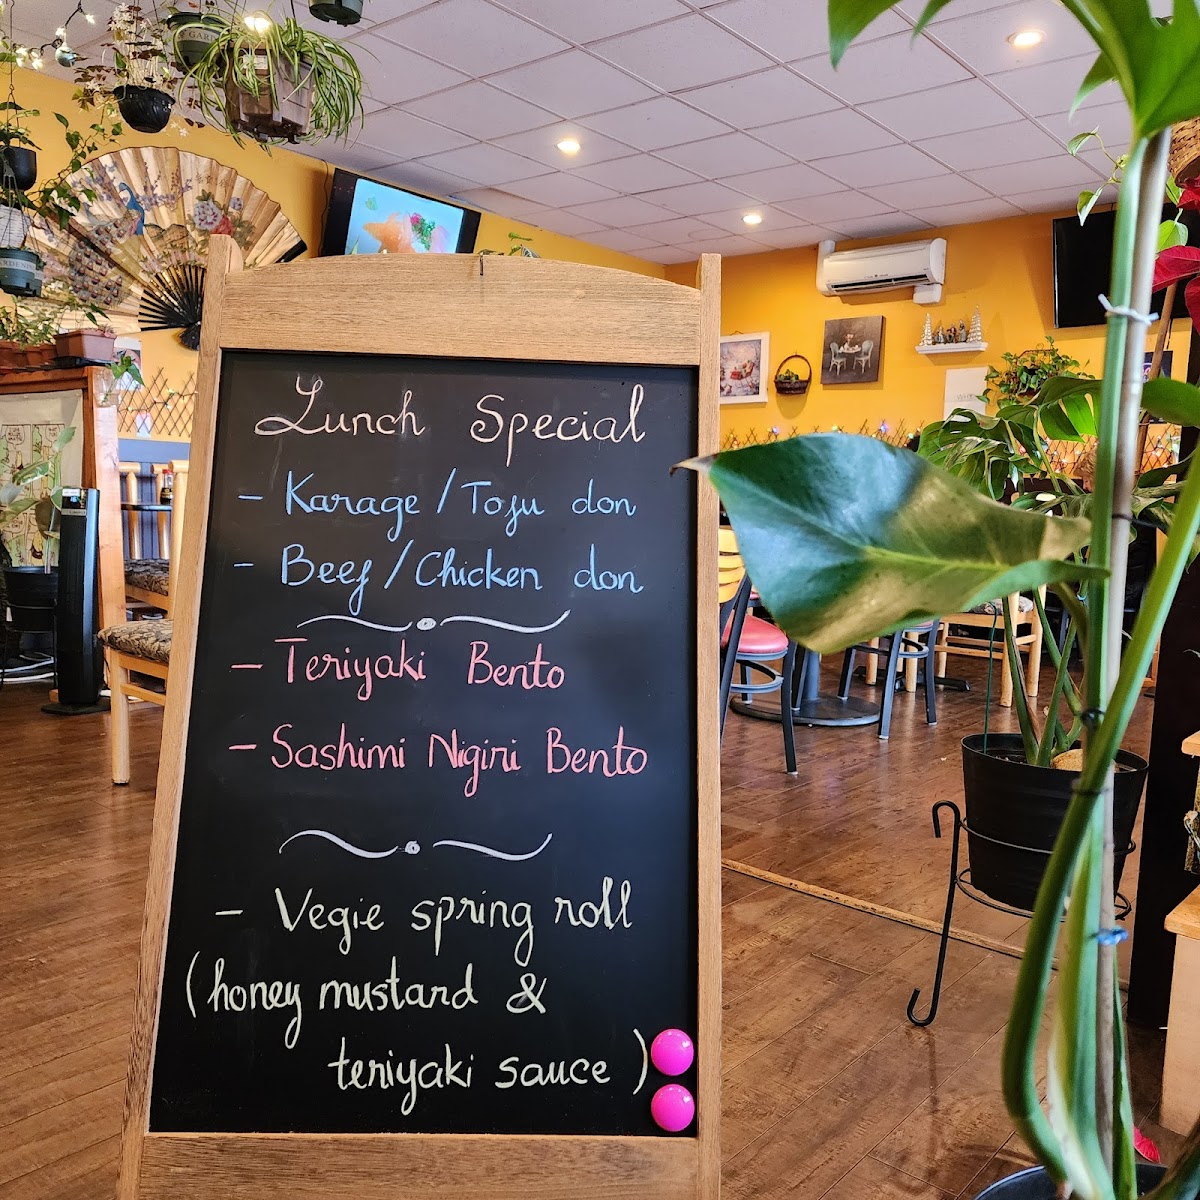 Lunch Special
- Karage / Tofu don
- Beef / Chicken don
- Teriyaki Bento
- Sashimi Nigiri Bento
- Vegie spring roll
(honey mustard &
teriyaki sauce )